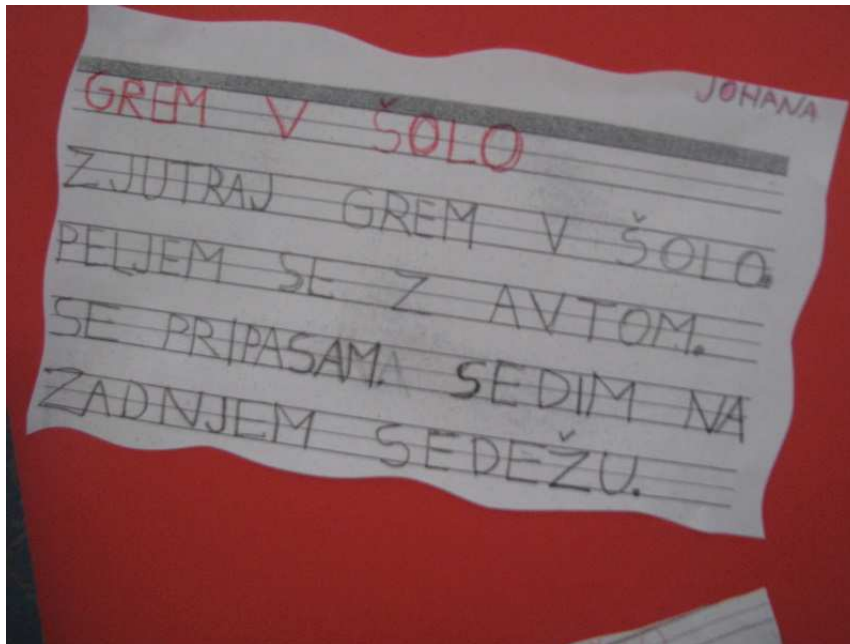 JOHANA
GREM V ŠOLO
ZJUTRAJ GREM V ŠOLO.
PELJEM SE Z AVTOM.
SE PRIPASAM. SEDIM NA
ZADNJEM SEDEŽU.